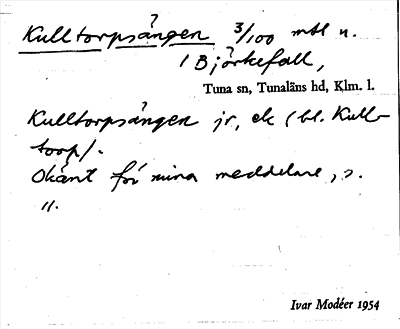 Kulltorpsängen 3/100 mbl n.
i Björkefall,
Tuna sn, Tunaläns hd, Klm. l.
Kulltorpsängen jr, ek (bl. Kull-
torp).
Okänt för mina meddelare, s.
Ivar Modéer 1954